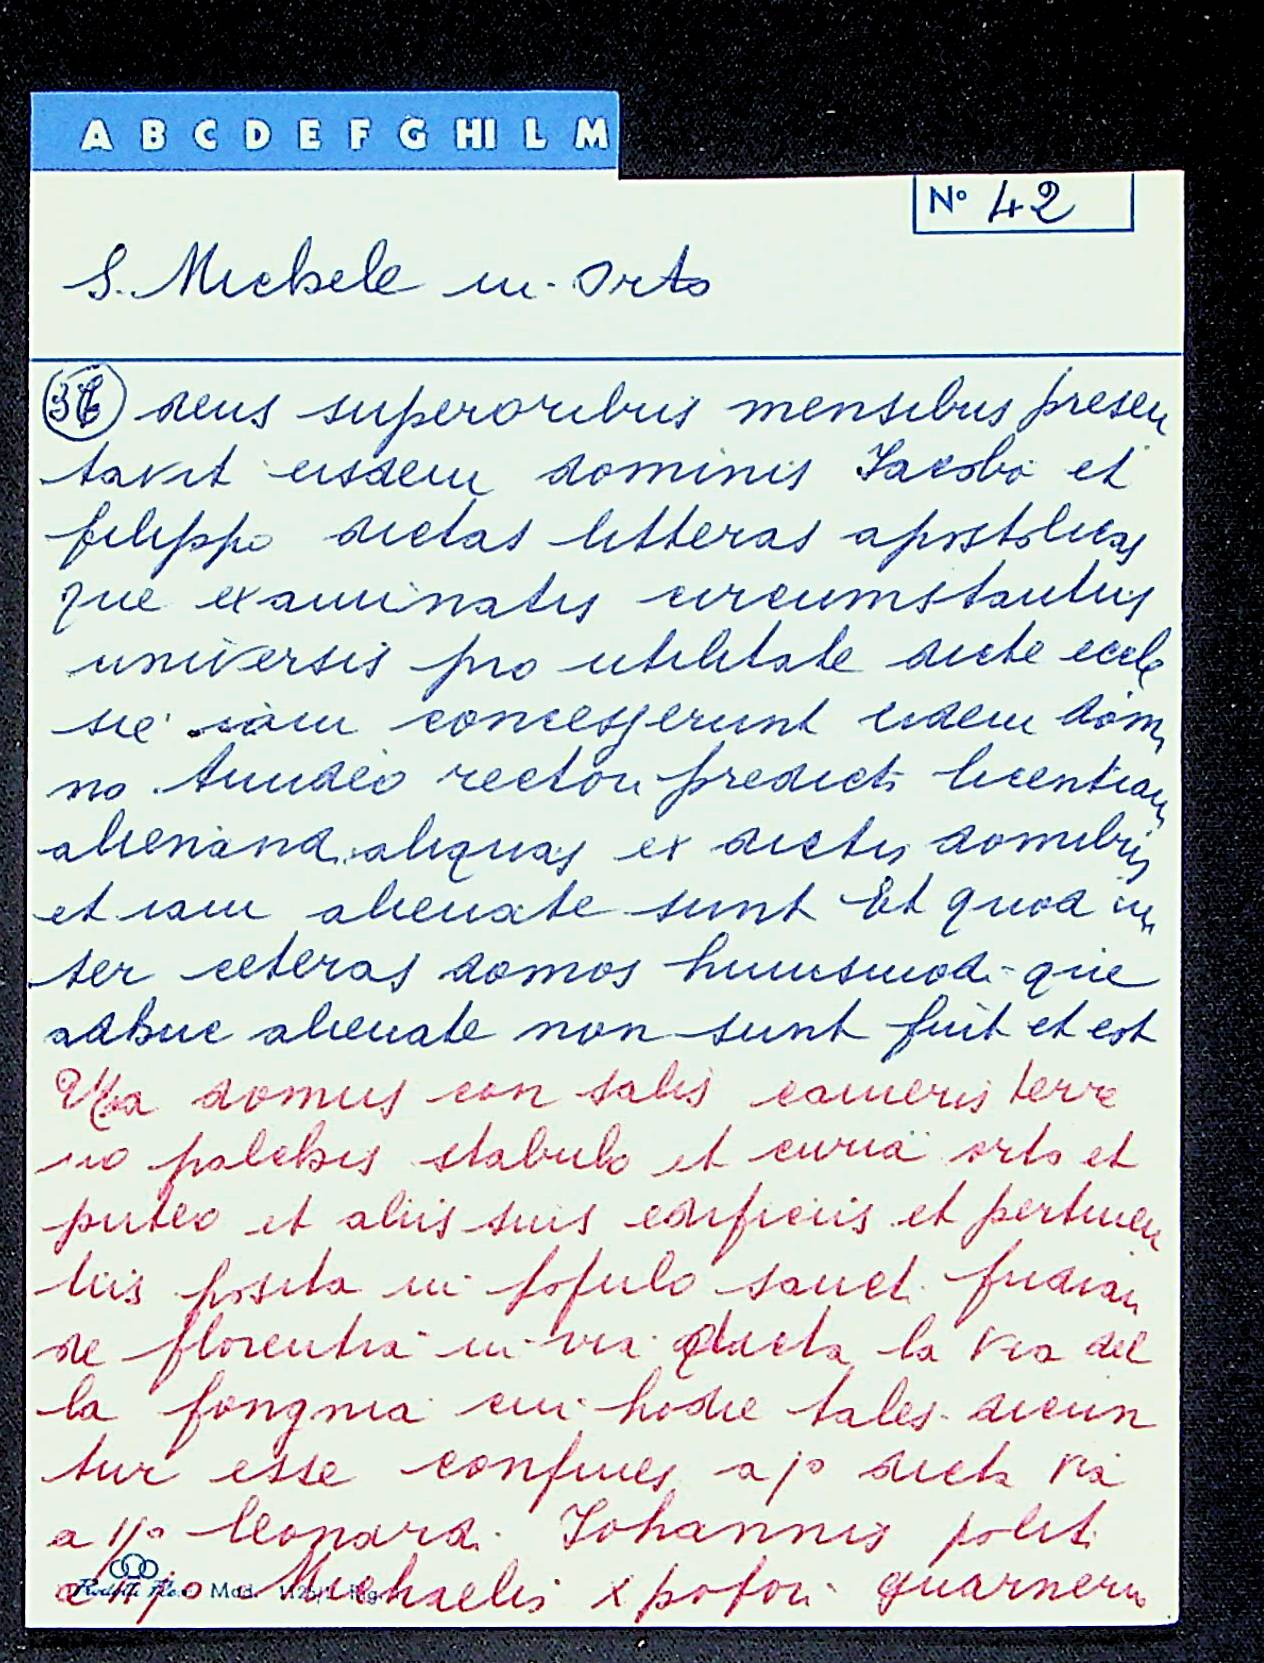 A B C D E F G HI L M
N° 42
S. Michele in Orto
deus superioribus mensibus presen
tavit eisdem dominis Iacobo et
filippo dictas litteras apostolicas
que examinatis circumstantiis
universis pro utilitate dicte eccle
sie iam concesserunt eidem domi
no rectori predicto licentiam
alienandi aliquas ex dictis domibus
et iam alienate sunt Et quod in
ter ceteras domos huiusmodi que
adhuc alienate non sunt fuit et est
Una domus con salis cameris terre
no palchis stabulo et curia orto et
puteo et aliis suis edificiis et pertinen
tiis posita in populo sancti fridiani
de florentia in via dicta la via del
la fongnia cui hodie tales dicun
tur esse confines a j° dicta via
a ij° leonardi Iohannis politi
a iij° Michaelis xpofori guarnerii